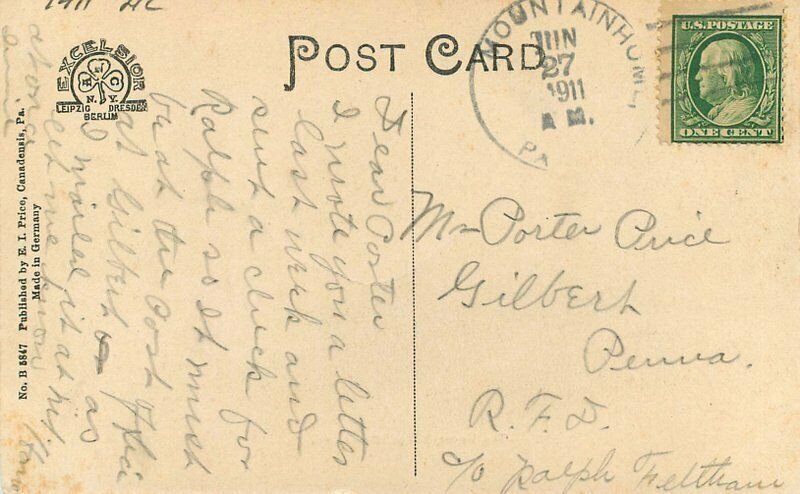 1911
POST CARD
EXCELSIOR
N.Y.
LEIPZIG DRESDEN
BERLIN
MOUNTAINHOME
JUN
27
1911
A M.
PA
U.S. POSTAGE
ONE CENT
No. B 5847 Published by E. I. Price, Canadensis, Pa.
Made in Germany
Dear Porter
I wrote you a letter
last week and
sent a check for
Ralph so it must
be at the Post office
at Gilbert as
I mailed it at his
let me know
at once
Mr Porter Price
Gilbert
Penna.
R. F. D.
c/o Ralph Feltham